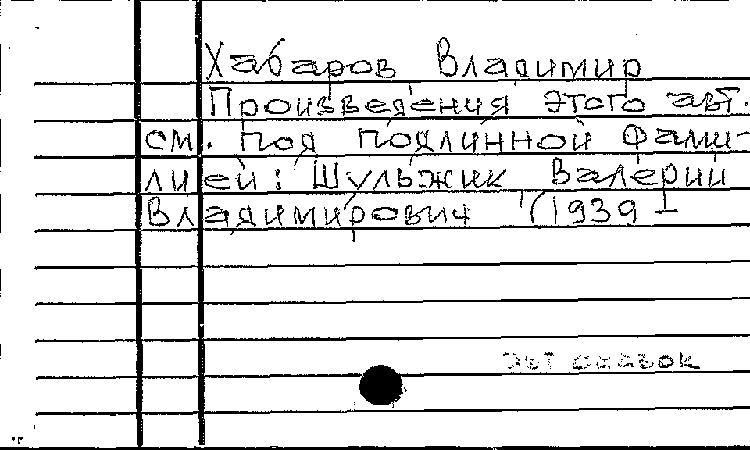 Хабаров Владимир
Произведения этого авт.
см. под подлинной фами-
лией: Шульжик Валерий
Владимирович (1939 –
сказок